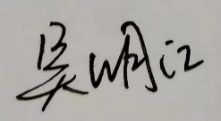 吴明江